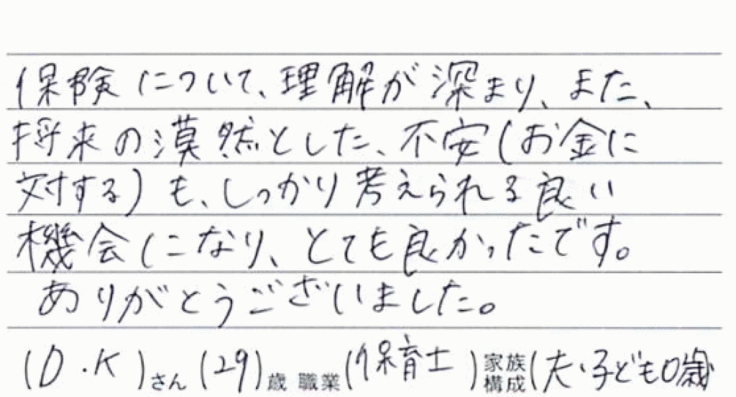 保険について、理解が深まり、また、
将来の漠然とした、不安(お金に
対する)も、しっかり考えられる良い
機会になり、とても良かったです。
ありがとうございました。
(D.K)さん(29)歳 職業(保育士)家族構成(夫・子ども0歳